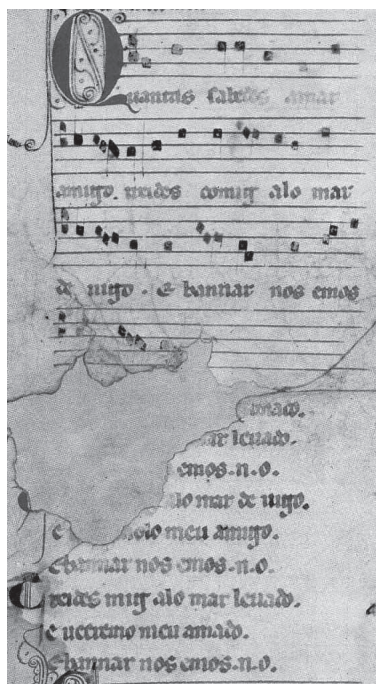 Quantas sabedes amar
amigo. treides comig alo mar
de uigo. E bannar nos emos
amado.
leuado.
emos.n.o.
lo mar de uigo.
e meu amigo.
e bannar nos emos.n.o.
Treides mig alo mar leuado.
e ueeremo meu amado.
e bannar nos emos.n.o.